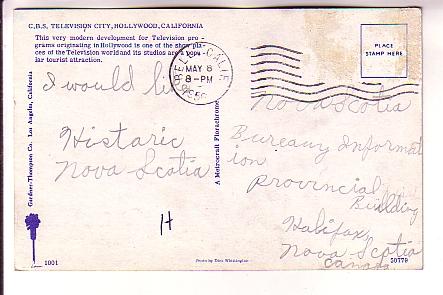 C.B.S. TELEVISION CITY, HOLLYWOOD, CALIFORNIA
This very modern development for Television pro-
grams originating in Hollywood is one of the show pla-
ces of the Television world and its studios are a popu-
lar tourist attraction.
CALIF.
MAY 8
8-PM
PLACE
STAMP HERE
I would like
Historic
Nova Scotia
H
Nova Scotia
Bureauy Informat
ion
Provincial
Building
Halifax,
Nova Scotia
Canada
Gardner-Thompson Co. Los Angeles, California
A Metrocraft Florachrome
1001
Photo by Dick Whittington
50779